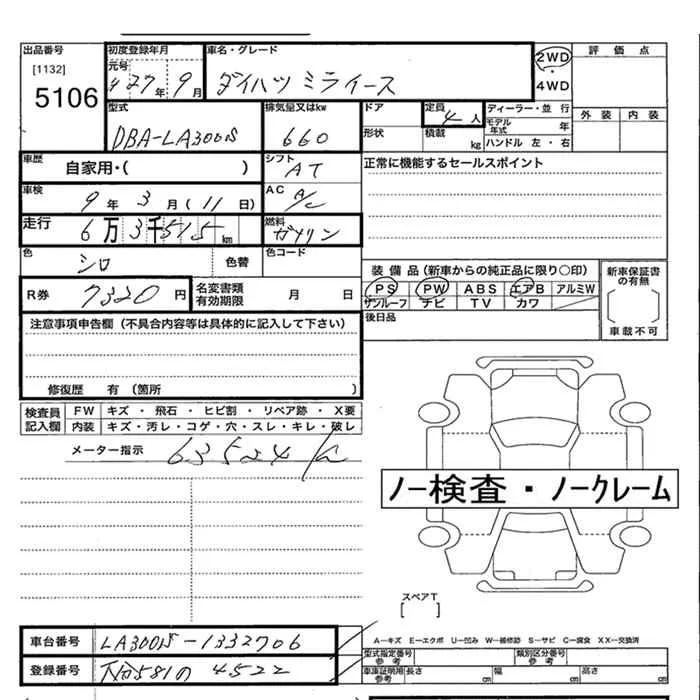 出品番号 初度登録年月 車名・グレード 評価点
[1132] 元号 2WD
5106 27年 9月 ダイハツ ミライース ・ 4WD
型式 排気量又はkw ドア 定員 ディーラー・並行 外装 内装
4人 モデル年式 年
DBA-LA300S 660 形状 積載 kg ハンドル 左・右
車歴 自家用・( ) シフト AT 正常に機能するセールスポイント
車検 9年 3月(11日) AC A/C
走行 6万3千515km 燃料 ガソリン
色 シロ 色替 色コード
装備品(新車からの純正品に限り〇印) 新車保証書の有無
R券 7320円 名変書類有効期限 月 日 PS PW ABS エアB アルミW
サンルーフ ナビ TV カワ
注意事項申告欄(不具合内容等は具体的に記入して下さい) 後日品 車載不可
修復歴 有(箇所 )
検査員記入欄 FW キズ・飛石・ヒビ割・リペア跡・X要
内装 キズ・汚レ・コゲ・穴・スレ・キレ・破レ
メーター指示 63524
ノー検査・ノークレーム
スペアT
[ ]
車台番号 LA300S-1332706 A-キズ E-エクボ U-凹み W-補修跡 S-サビ C-腐食 XX-交換済
型式指定番号参考 類別区分番号参考
登録番号 581 4522 車庫証明用参考 長さ cm 幅 cm 高さ cm